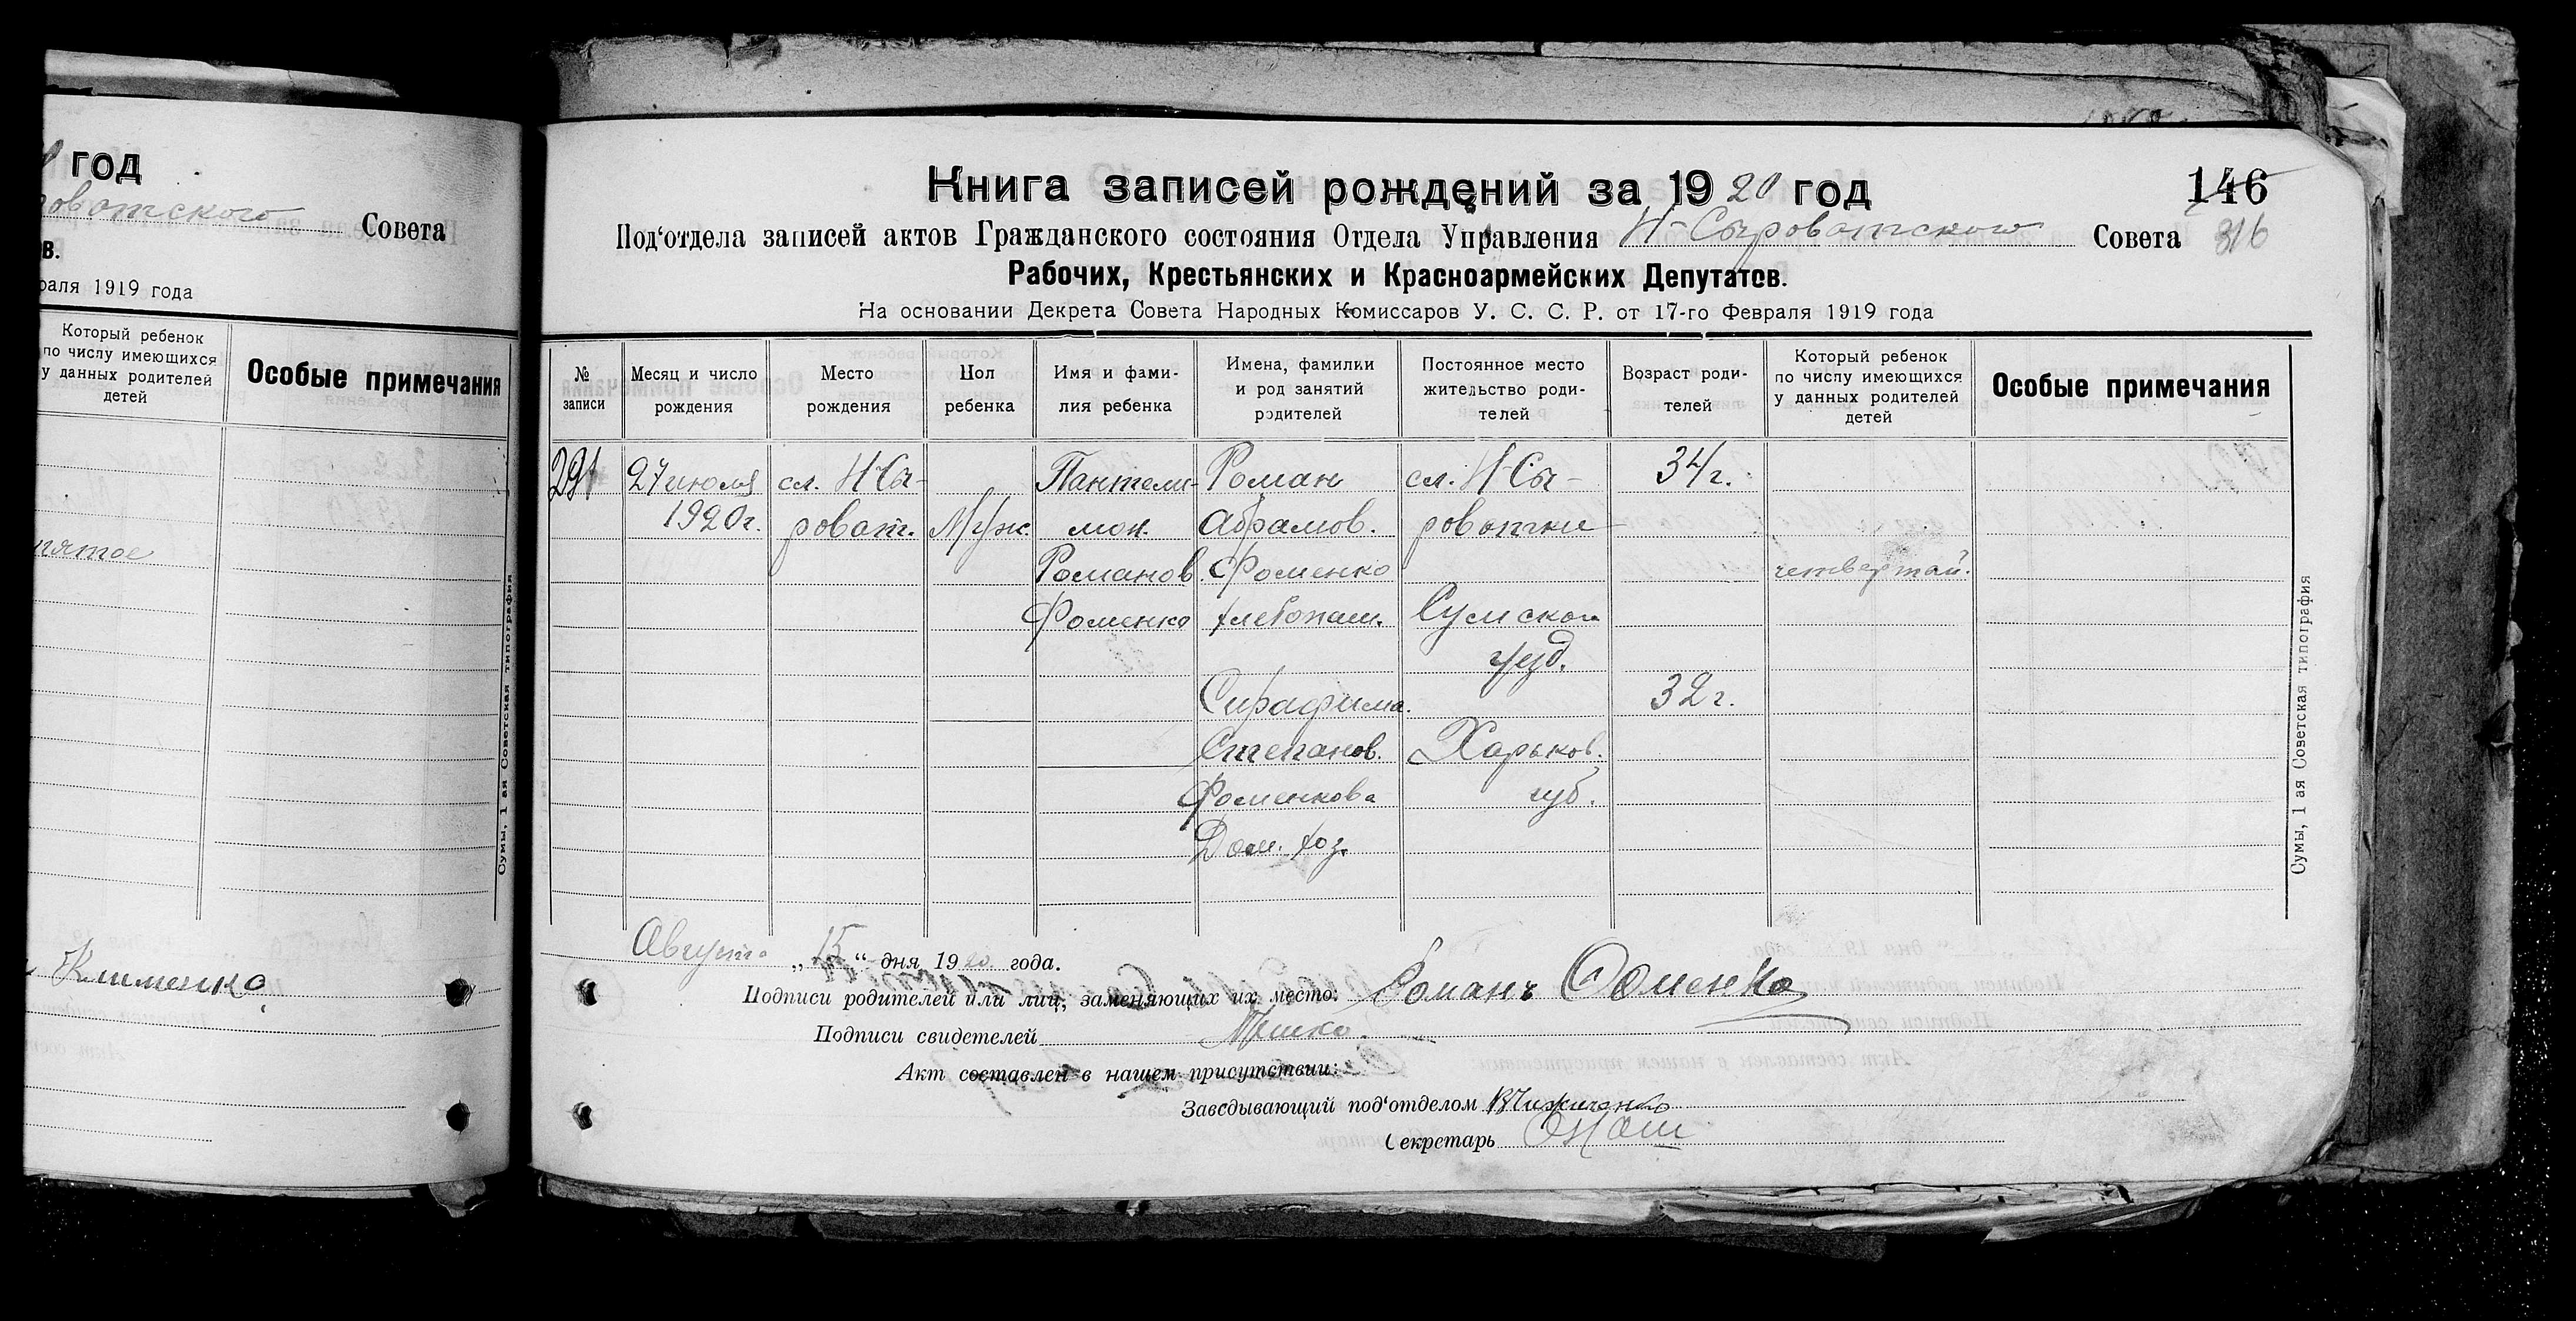 год
Совета
в.
1919 года
Который ребенок
по числу имеющихся
у данных родителей
детей
Особые примечания
пятое
Клименко
Сумы, 1 ая Советская типография
Книга записей рождений за 1920 год
146
Под‘отдела записей актов Гражданского состояния Отдела Управления Н-Сыроватского Совета
316
Рабочих, Крестьянских и Красноармейских Депутатов.
На основании Декрета Совета Народных Комиссаров У. С. С. Р. от 17-го Февраля 1919 года
№
записи
Месяц и число
рождения
Место
рождения
Пол
ребенка
Имя и фами-
лия ребенка
Имена, фамилки
и род занятий
родителей
Постоянное место
жительство роди-
телей
Возраст роди-
телей
Который ребенок
по числу имеющихся
у данных родителей
детей
Особые примечания
291
27 июля
1920г.
сл. Н-Сы-
роват.
Муж.
Пантели-
мон.
Романов.
Фоменко
Роман
Абрамов.
Фоменко
хлебопаш.
Сирафима
Степанов.
Фоменкова
Дом. хоз.
сл. Н-Сы-
роватки
Сумского
уезд.
Харьков.
губ.
34г.
32г.
четвертый.
Августа „15“ дня 1920 года.
Подписи родителей или лиц, заменяющих их место: Романъ Фоменко
Подписи свидетелей
Акт составлен в нащем присутствии:
Заведывающий под‘отделом
Секретарь
Сумы, 1 ая Советская типография